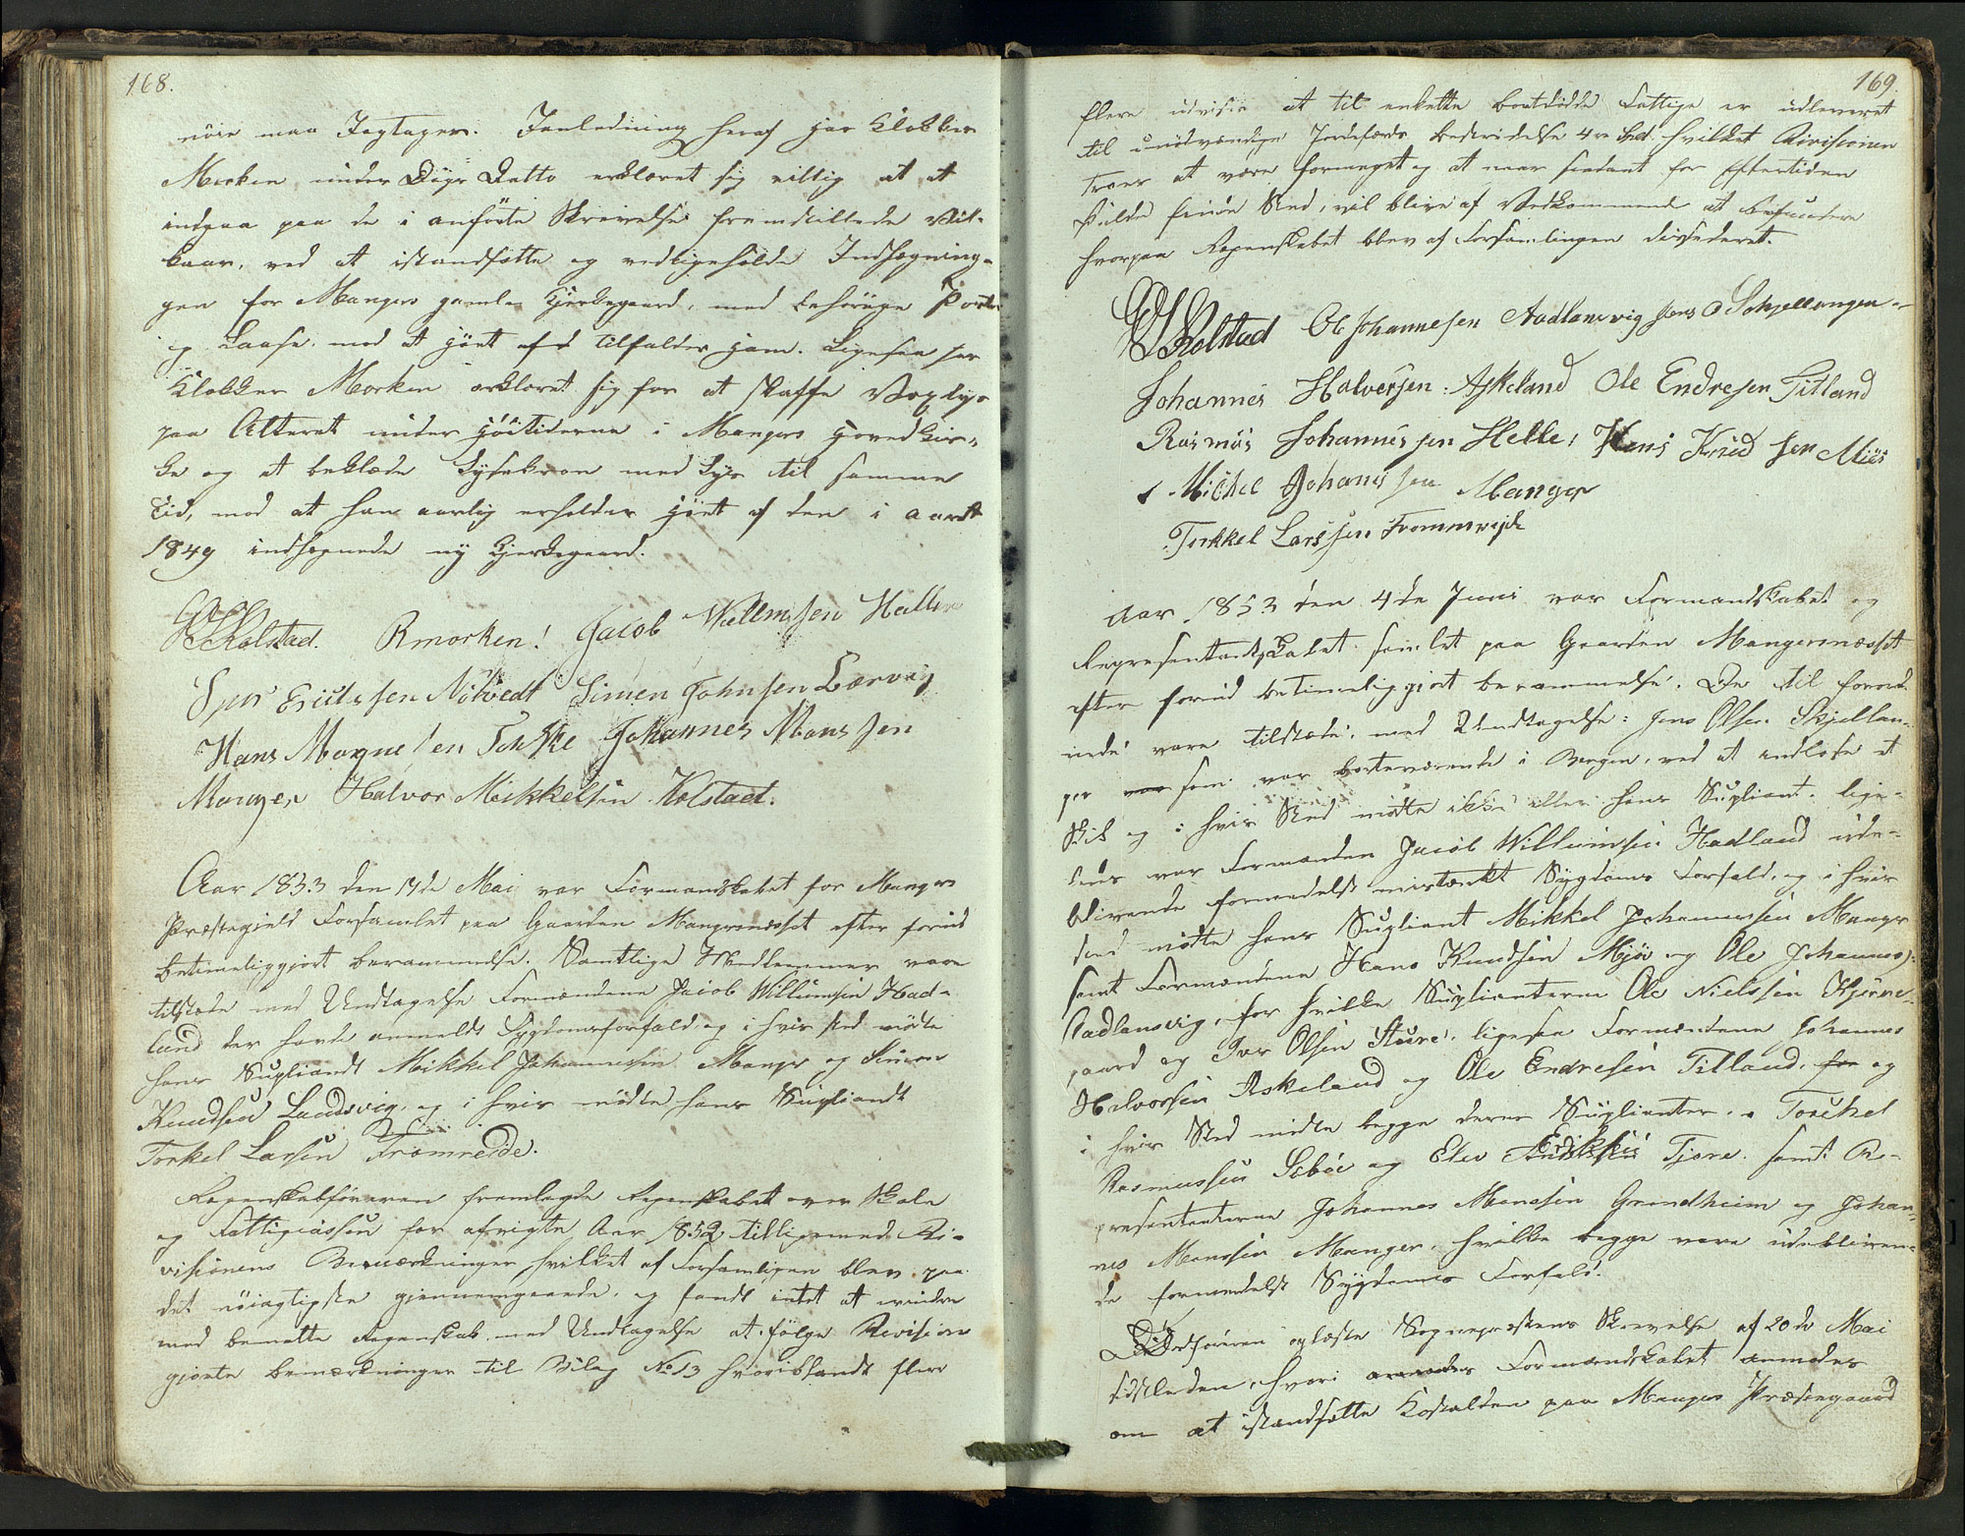 168.
nöie maa Iagtages. I Anledning heraf har Klokker
Morken under Dags Datto erklæret sig villig at at
indgaa paa de i anförte Skrivelse fremstillede Vil-
kaar, ved at istandsætte og vedligeholde Indhegnin-
gen for Mangers gamle Kjerkegaard, med behörige Porte
og Laase, mod at höet tilfalder ham. Ligesaa har
Klokker Morken erklæret sig for at skaffe Voxlys
paa Alteret under Höitiderne i Mangers Hovedkir-
ke og at beklæde Lysekrone med Lys til samme
Tid, mod at han aarlig erholder Höet af den i Aaret
1849 indhegnede ny Kjerkegaard.
Kolstad. RMorken! Jacob Willumsen Hadlen
Sjur Erichssen Nötvedt Simen Johnsen Lærvig
Hans Magnesen Johannes Monssen
Manger Halvor Mikkelsen Kolstad.
Aar 1853 den 14de Mai var Formandskabet for Mangers
Præstegjeld Forsamlet paa Gaarden Mangersnæsset efter forud
betimeliggjort berammelse. Samtlige Medlemmer vare
tilstede med Undtagelse Formændene Jacob Willumsen Had-
land der havde anmeldt Sygdomsforfald og i hvis sted mötte
hans Supliandt Mikkel Johannesen Manger og Simon
Knudsen Landsvig, og i hvis mödte hans Supliandt
Torkel Larsen Fromreide.
Regenskabsföreren fremlagde Regenskabet over Skole
og Fattigcassen for afvigte Aar 1852 tilligemed Re-
visionens Bemærkninger hvilket af Forsamligen blev paa
det nöiagtigste gjennemgaaede, og fandt intet at erindre
med bemelte Regenskab med Undtagelse at fölge Revisions
gjorte bemærkninger til Bilag No 13 hvoriblandt flere
169.
flere udvises at til enkelte bortdödde Fattige er udleveret
til unödvendige Jordefærds bekostelse 4re Spd. hvilket Revisionen
troer at være formeget og at naar saadant for Eftertiden
skulde finde Sted, vil blive af Vedkommende at
hvorpaa Regenskabet blev af Forsamlingen desideret.
Kolstad Ol Johannesen Aadlansvig Jens O Schjellanger
Johannes Halversen Askeland Ole Endresen Titland
Rasmus Johannessen Helle, Hans Knudsen Miös
Michel Johanissen Manger
Torkkel Larssen Frommreide
Aar 1853 den 4de Juni var Formandskabet og
Representantskabet samlet paa Gaarden Mangersnæsset
efter forud betimeliggjort berammelse. De til forord
nede vare tilstede, med Undtagelse: Jens Olsen Skjellan-
ger som var borteværende i Bergen, ved at indlöse et
Skib og i hvis Sted mötte ikke eller hans Supliant. lige-
ledes var Formanden Jacob Willumsen Hadland ude-
blivende formedelst Sygdoms Forfald, og i hvis
sted mötte hans Supliant Mikkel Johannesen Manger
samt Formændene Hans Knudsen Mjös og Ole Johannes:
Aadlansvig, for hvilke Suplianterne Ole Nielssen Kjerre-
gaard og Iver Olsen Sture, ligesaa Formændene Johannes
Halvorsen Askeland og Ole Endresen Titland, for og
i hvis Sted mödte begge deres Suplianter, Torkel
Rasmussen Sæböe og Elev Erikksen Tjore. samt Re-
presentanterne Johannes Monssen Grundheim og Johan-
nes Monssen Manger, hvilke begge vare udebliven-
de formedelst Sygdoms Forfald.
Ordföreren oplæste Sognepræstens Skrivelse af 20de Mai
sidstleden, hvori anmodes Formandskabet anmodes
om at istandsætte Kostalden paa Mangers Præstegaard